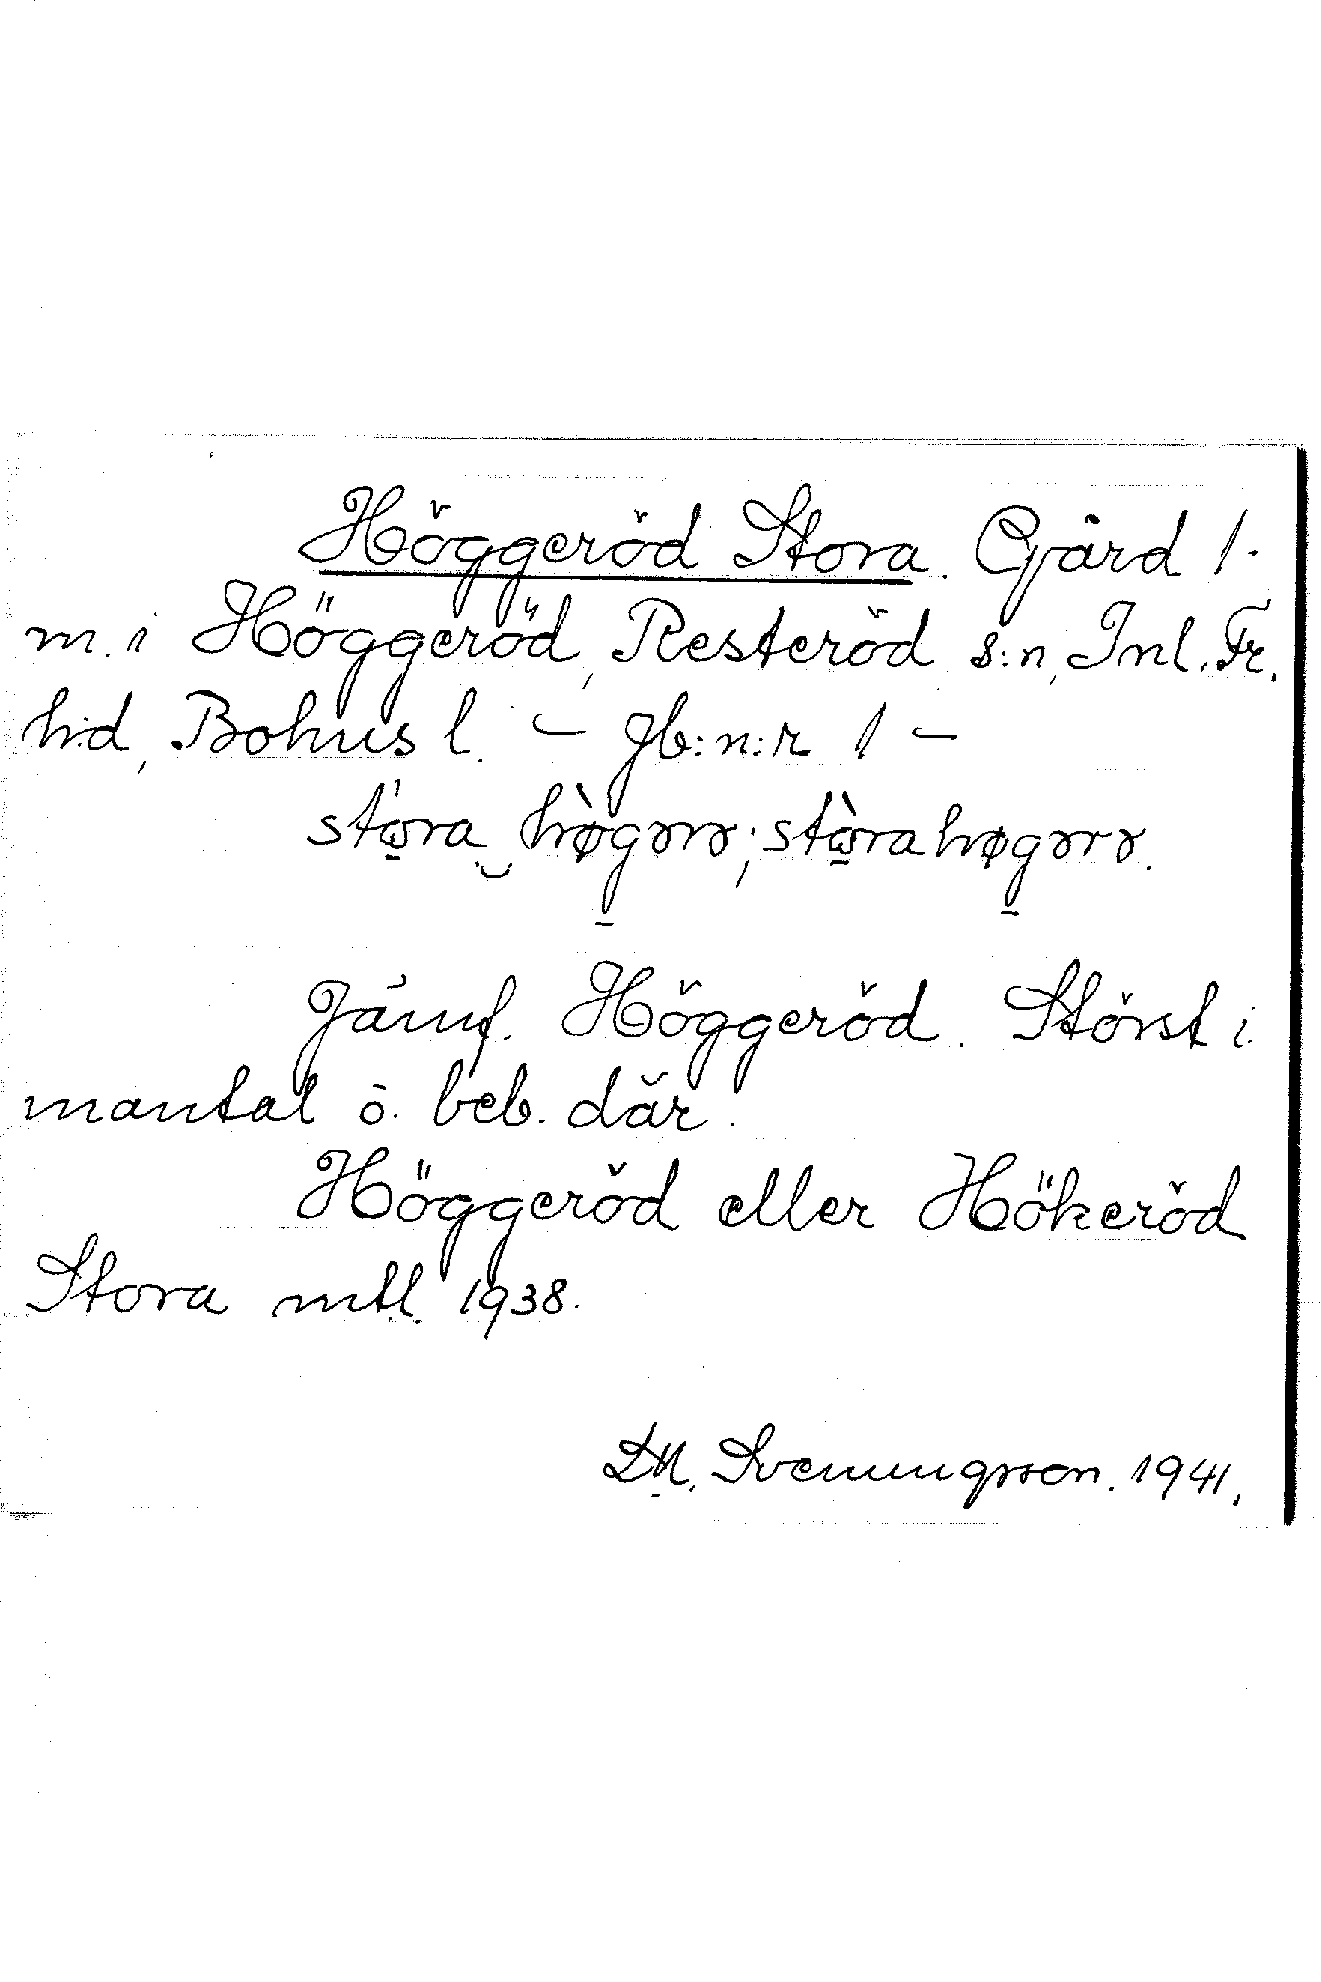 Höggeröd Stora. Gård 1
m. i Höggeröd, Resteröd s:n, Inl. Fr.
h:d, Bohus l. – Jb:n:r 1 –
stora høgərr; storahøgərr.
Jämf. Höggeröd. Störst i
mantal o. beb. där.
Höggeröd eller Hökeröd
Stora mtl. 1938.
D.M. Svenungsson. 1941.